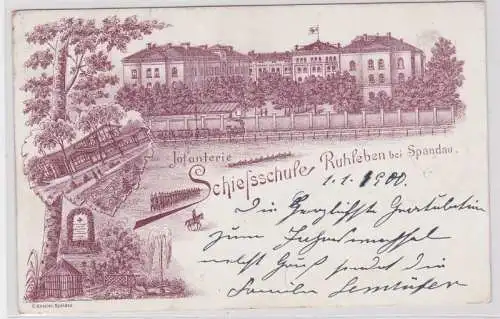 Infanterie
Schiefsschule Ruhleben bei Spandau.
1.1.1900.
Die herzlichste Gratulation
zum Jahreswechsel
nebst Gruß sendet die
Familie